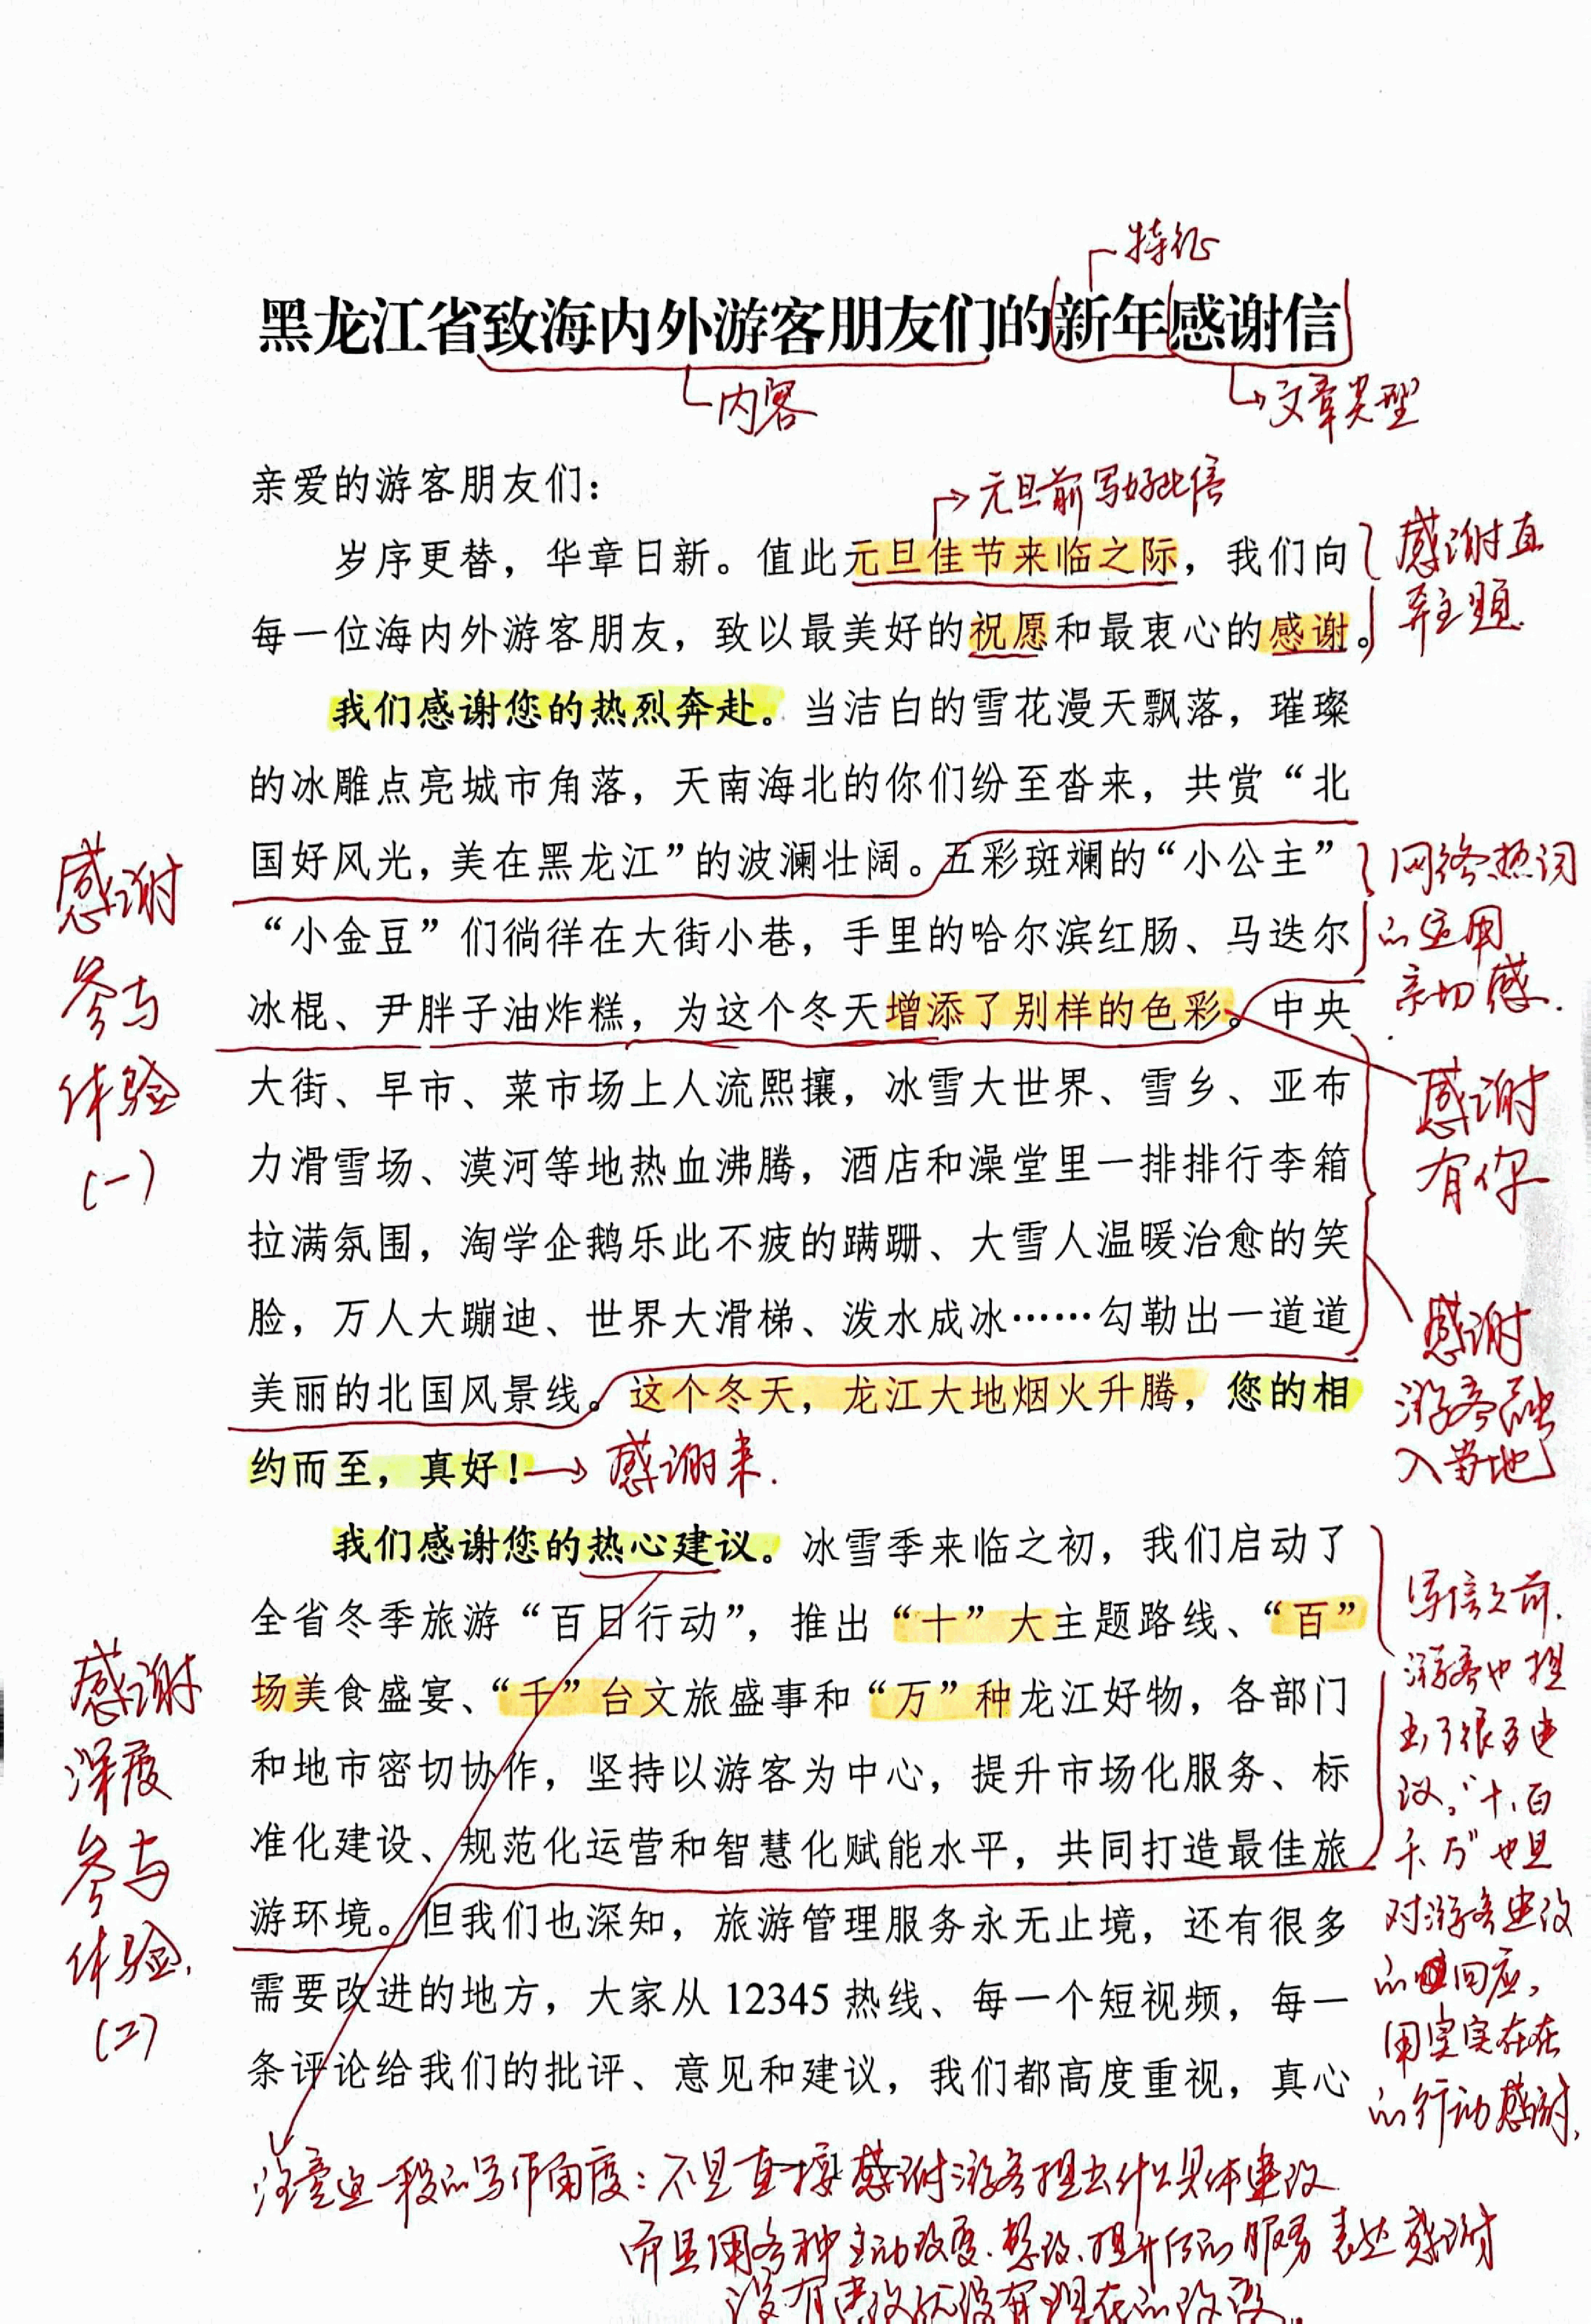 特征
黑龙江省致海内外游客朋友们的新年感谢信
内容
文章类型
亲爱的游客朋友们：
元旦前写好此信
岁序更替，华章日新。值此元旦佳节来临之际，我们向
每一位海内外游客朋友，致以最美好的祝愿和最衷心的感谢。
感谢直
奔主题
我们感谢您的热烈奔赴。当洁白的雪花漫天飘落，璀璨
的冰雕点亮城市角落，天南海北的你们纷至沓来，共赏“北
国好风光，美在黑龙江”的波澜壮阔。五彩斑斓的“小公主”
“小金豆”们徜徉在大街小巷，手里的哈尔滨红肠、马迭尔
冰棍、尹胖子油炸糕，为这个冬天增添了别样的色彩。中央
大街、早市、菜市场上人流熙攘，冰雪大世界、雪乡、亚布
力滑雪场、漠河等地热血沸腾，酒店和澡堂里一排排行李箱
拉满氛围，淘学企鹅乐此不疲的蹒跚、大雪人温暖治愈的笑
脸，万人大蹦迪、世界大滑梯、泼水成冰……勾勒出一道道
美丽的北国风景线。这个冬天，龙江大地烟火升腾，您的相
约而至，真好！
感谢来.
感谢
参与
体验
(一)
网络热词
的运用
亲切感.
感谢
有你
感谢
游客融
入当地
我们感谢您的热心建议。冰雪季来临之初，我们启动了
全省冬季旅游“百日行动”，推出“十”大主题路线、“百”
场美食盛宴、“千”台文旅盛事和“万”种龙江好物，各部门
和地市密切协作，坚持以游客为中心，提升市场化服务、标
准化建设、规范化运营和智慧化赋能水平，共同打造最佳旅
游环境。但我们也深知，旅游管理服务永无止境，还有很多
需要改进的地方，大家从 12345 热线、每一个短视频，每一
条评论给我们的批评、意见和建议，我们都高度重视，真心
感谢
深度
参与
体验.
(二)
写信之前.
游客也提
出了很多建
议。“十、百
千、万”也是
对游客建议
的回应，
用实实在在
的行动感谢.
1
注意这一段的写作角度：不是直接感谢游客提出什么具体建议
而是用各种主动改变、整改、提升后的服务表达感谢
没有建议就没有现在的改变。